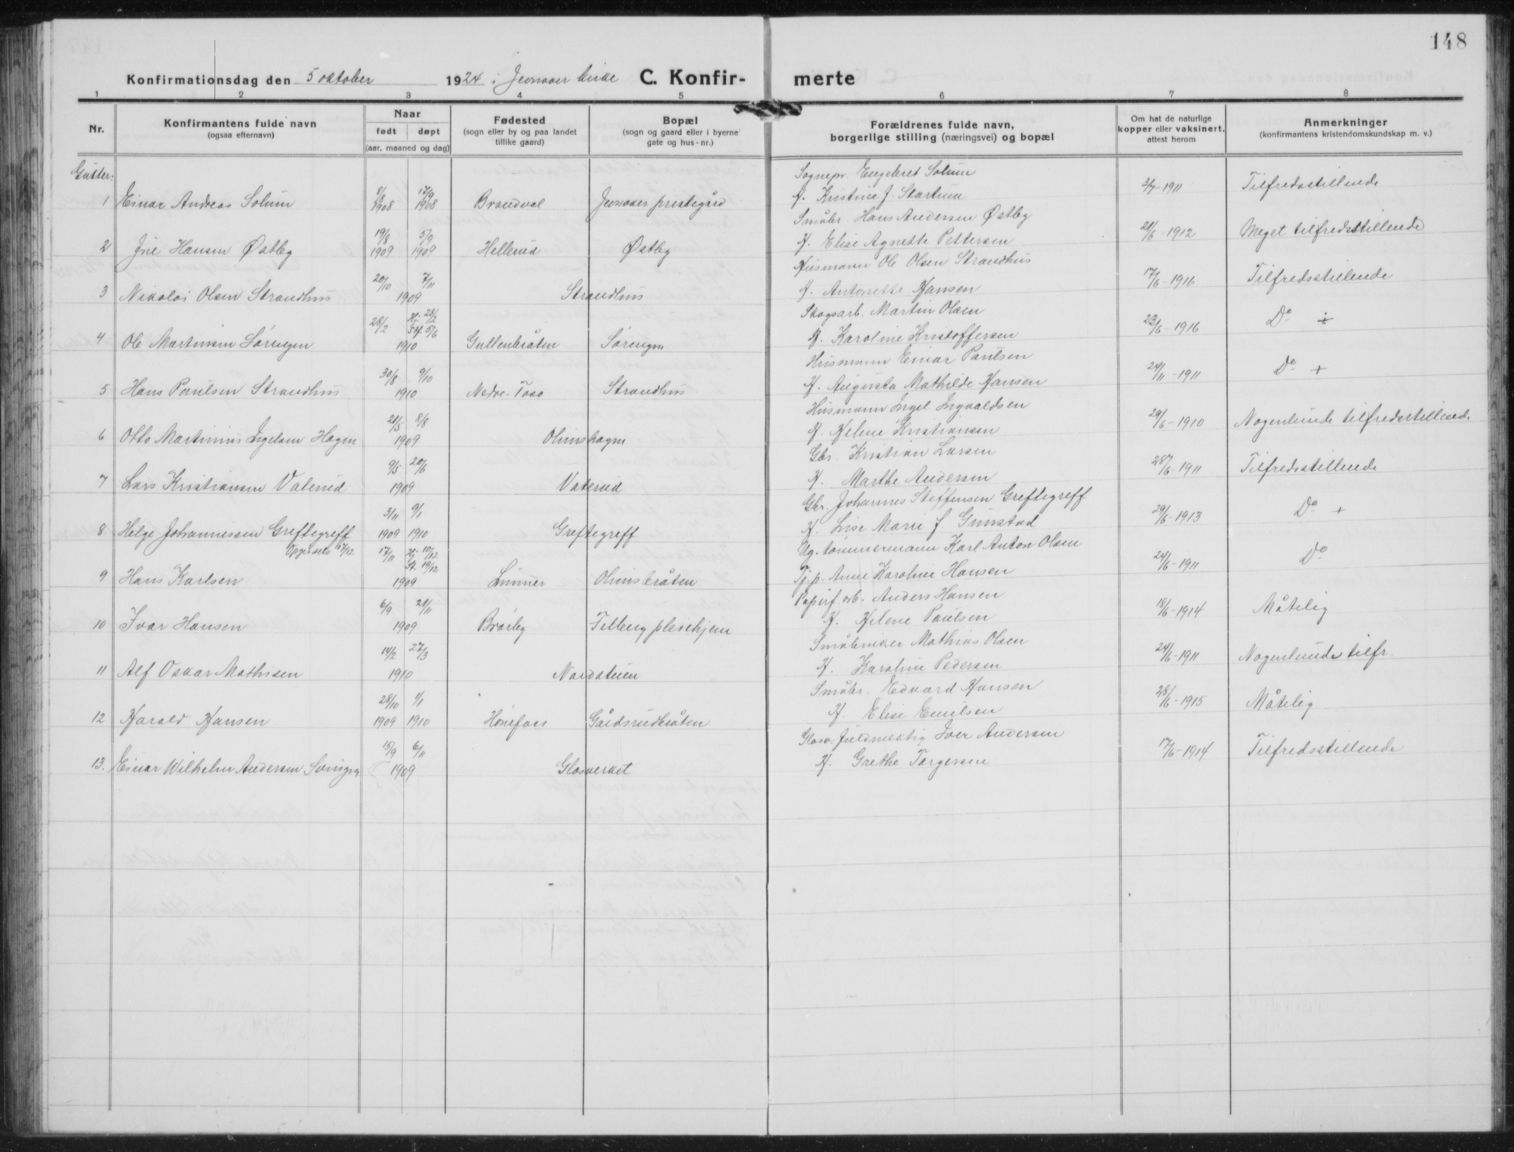 148
Konfirmationsdag den 5 oktober 1924 i Jevnaker kirke C. Konfirmerte
1 2 3 4 5 6 7 8
Nr. Konfirmantens fulde navn (ogsaa efternavn) Naar født døpt (aar, maaned og dag) Fødested (sogn eller by og paa landet tillike gaard) Bopæl (sogn og gaard eller i byerne gate og hus-nr.) Forældrenes fulde navn, borgerlige stilling (næringsvei) og bopæl Om hat de naturlige kopper eller vaksinert, attest herom Anmerkninger (konfirmantens kristendomskundskap m. v.)
Gutter:
1 Einar Andreas Solum 1908 1908 Brandval Jevnaker prestegård Sognepr. Engebret Solum H. Kristine J. Startum 1911 Tilfredsstillende
2 Hansen Østby 19/8 1909 5/9 1909 Hellerud Østby Småbr. Hans Andersen Østby H. Elise Agnette Pettersen 28/6-1912 Meget tilfredsstillende
3 Nikolai Olsen Strandhus 20/10 7/11 1909 Strandhus Husmann Ole Olsen Strandhus H. Antonette Hansen 17/6-1916 Tilfredsstillende
4 Ole Martinsen Sørengen 28/2 1910 Gullenbråten Sørengen Skogsarb. Martin Olsen H. Karoline Kristoffersen 23/6-1916 Do +
5 Hans Paulsen Strandhus 30/8 9/10 1910 Nedre Toso Strandhus Husmann Einar Paulsen H. Augusta Mathilde Hansen 24/11-1911 Do +
6 Otto Martinius Ingelsen Hagen 21/5 8/8 1909 Olimshagen Husmann Ingel Ingvaldsen H. Helene Kristiansen 29/6-1910 Nogenlunde tilfredsstillende
7 Lars Kristiansen Valerud 9/5 20/6 1909 Valerud Gbr. Kristian Larsen H. Marthe Andersen 28/6-1911 Tilfredsstillende
8 Helge Johannessen Greftegreff 3/11 1909 9/1 1910 Greftegreff Gbr. Johannes Steffensen Greftegreff H. Lise Marie f. Grinstad 29/6-1913 Do +
9 Hans Karlsen 17/11 1909 Lunner Olimsbråten Ug. tømmermann Karl Anton Olsen Tj.p. Anne Karoline Hansen 24/6-1911 Do
10 Ivar Hansen 6/9 21/11 1909 Bråby Felberg pleiehjem Papirf. arb. Anders Hansen H. Helene Paulsen 18/6-1914 Måtelig
11 Alf Oskar Mathisen 14/2 27/3 1910 Nordsteien Småbruker Mathias Olsen H. Karoline Pedersen 24/6-1911 Nogenlunde tilfr.
12 Harald Hansen 28/10 1909 1/1 1910 Hønefoss Gårdsrudbråten Småbr. Edvard Hansen H. Elise Emilsen 28/6-1915 Måtelig
13. Einar Wilhelm Andersen 15/9 6/11 1909 Glasverket Iver Andersen H. Grethe Torgersen 17/6-1914 Tilfredsstillende